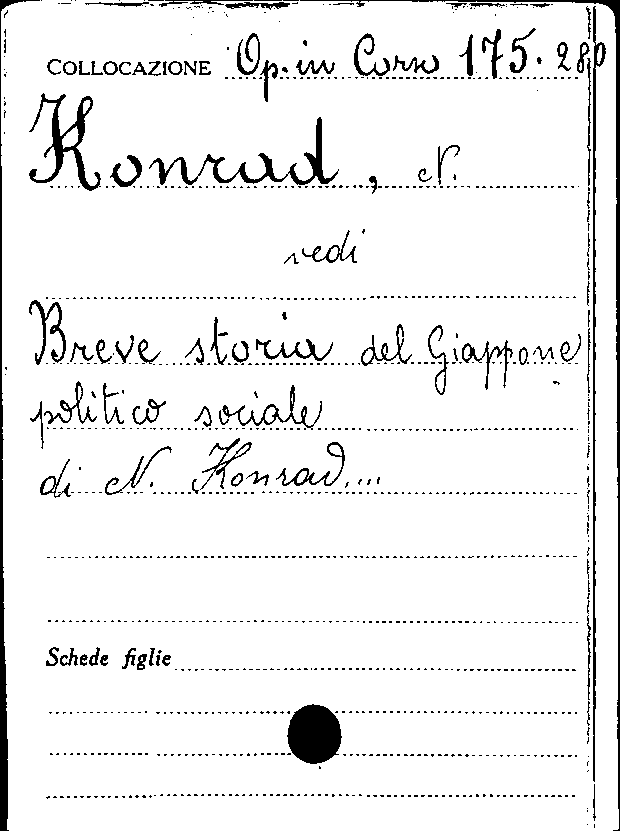 COLLOCAZIONE Op. in Corso 175. 280
Konrad, N.
vedi
Breve storia del Giappone
politico sociale
di N. Konrad....
Schede figlie